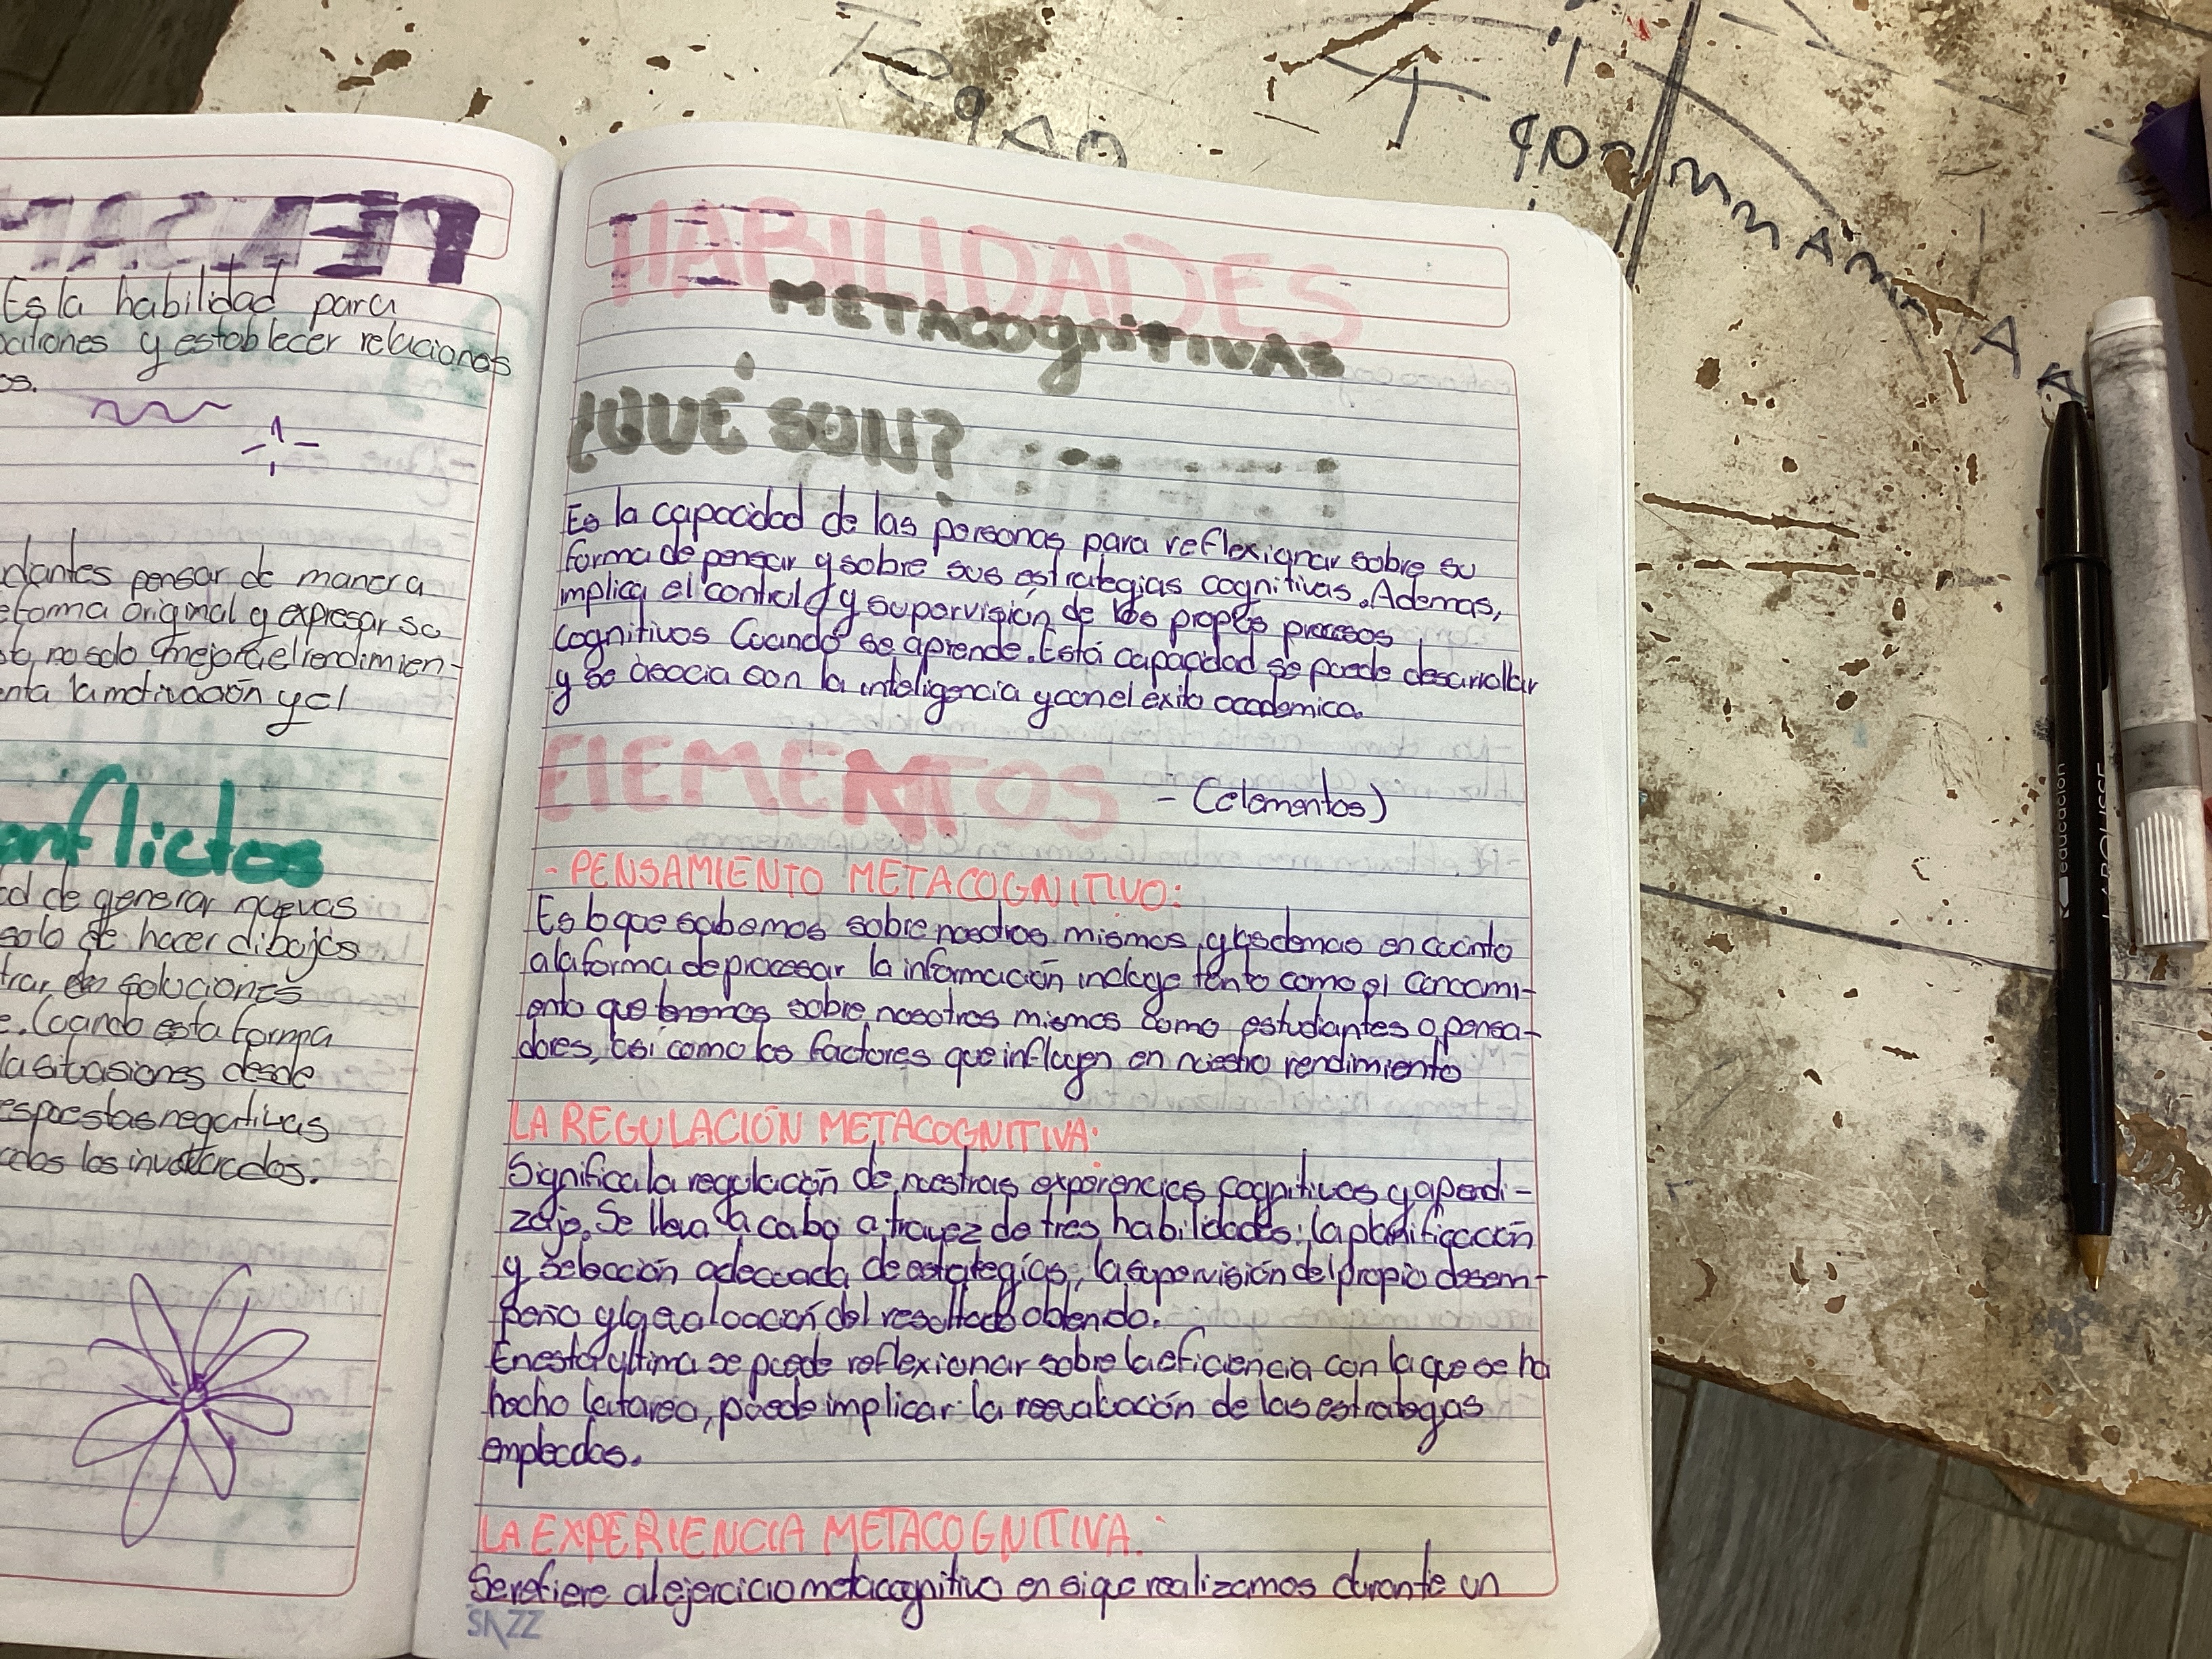 PENSAM
Es la habilidad para
y establecer relaciones
os.
dantes pensar de manera
forma original y expresar su
no solo mejora el rendimien-
la motivación y el
onflictos
de generar nuevas
solo de hacer dibujos
soluciones
e. Cuando esta forma
la situasiones desde
espuestas negativas
los involucrados.
HABILIDADES
METACOGNITIVAS
¿QUÉ SON?
Es la capacidad de las personas para reflexionar sobre su
forma de pensar y sobre sus estrategias cognitivas. Ademas,
implica el control y supervisión de los propios procesos
cognitivos Cuando se aprende. Está capacidad se puede desarrollar
y se asocia con la inteligencia y con el exito academico.
ElEMENTOS
- (elementos)
- PENSAMIENTO METACOGNITIVO:
Es lo que sabemos sobre nosotros mismos y los demas en cuanto
a la forma de procesar la información incluye tanto como el conocimi-
ento que tenemos sobre nosotros mismos como estudiantes o pensa-
dores, así como los factores que influyen en nuestro rendimiento
LA REGULACIÓN METACOGNITIVA:
Significa la regulación de nuestras experiencias cognitivas y aprendi-
zaje. Se lleva a cabo a travez de tres habilidades: la planificación
y selección adecuada de estategías, la supervisión del propio desem-
peño y la evaluación del resultado obtenido.
En esta ultima se puede reflexionar sobre la eficiencia con la que se ha
hecho la tarea, puede implicar la reevaluación de las estrategias
empleadas.
LA EXPERIENCIA METACOGNITIVA:
Se refiere al ejercicio metacognitivo en si que realizamos durante un
SAZZ
90 mm
educación
LAROUSSE